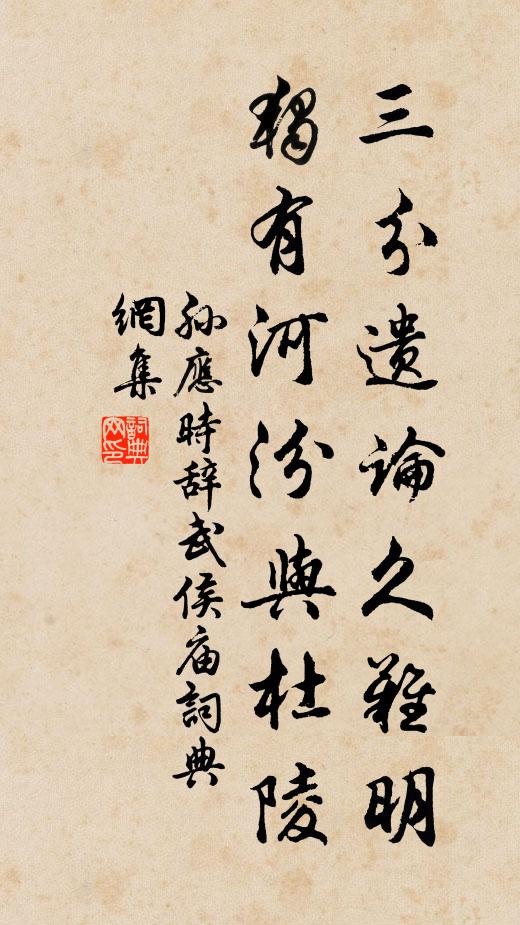 三分遺論久難明
獨有河汾與杜陵
孫應時辞武侯庙詞典
網集
詞典
网印